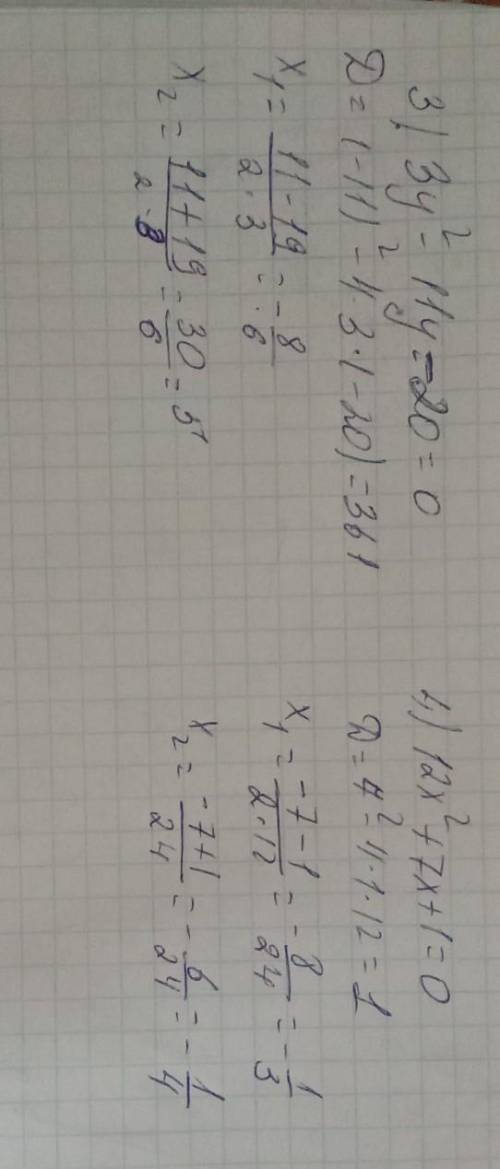 3) 3y² - 11y - 20 = 0
D = (-11)² - 4·3·(-20) = 361
x₁ = (11-19)/(2·3) = -8/6
x₂ = (11+19)/(2·3) = 30/6 = 5
4) 12x² + 7x + 1 = 0
D = 7² - 4·1·12 = 1
x₁ = (-7-1)/(2·12) = -8/24 = -1/3
x₂ = (-7+1)/24 = -6/24 = -1/4